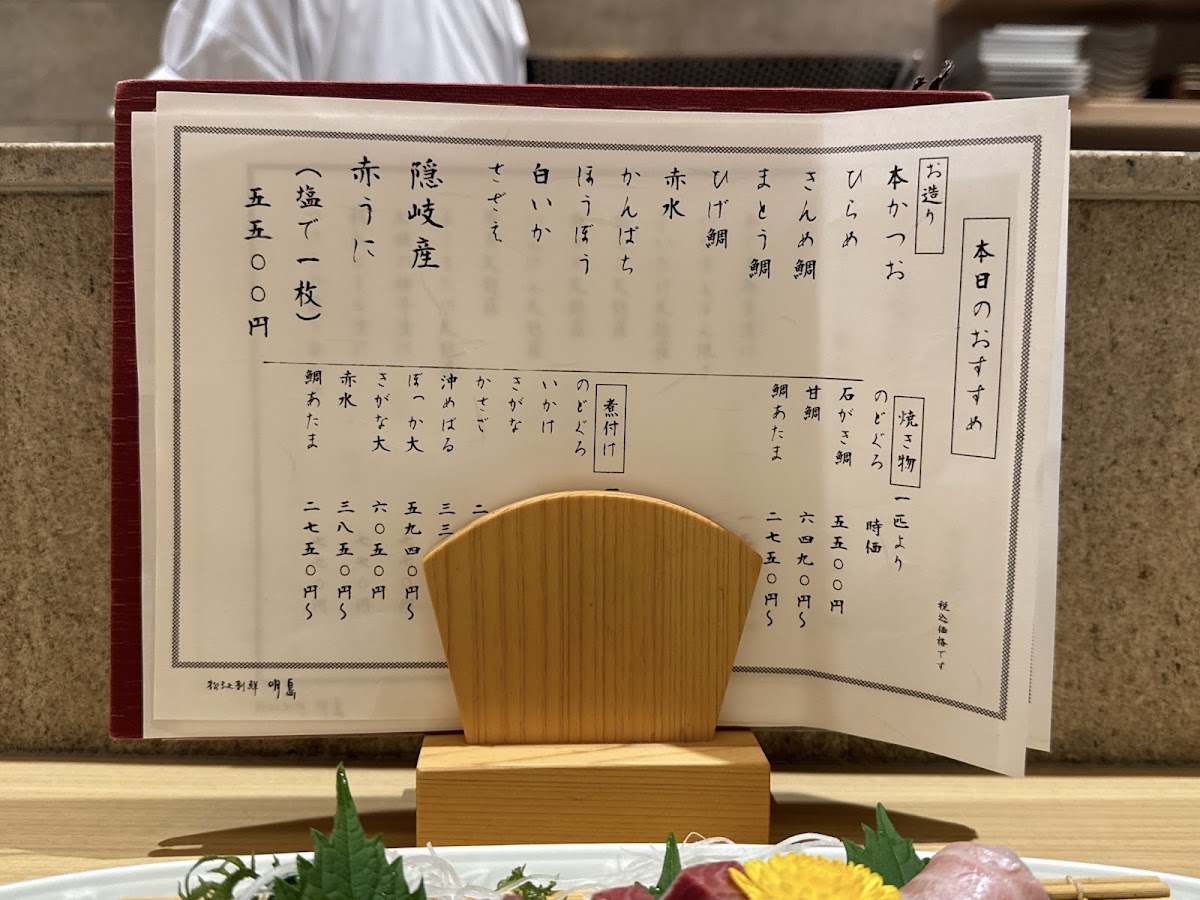 本日のおすすめ
お造り
本かつお
ひらめ
きんめ鯛
まとう鯛
ひげ鯛
赤水
かんばち
ほうぼう
白いか
さざえ
隠岐産
赤うに
(塩で一枚)
五五〇〇円
焼き物 一匹より
のどぐろ 時価
石がき鯛 五五〇〇円
甘鯛 六四九〇円〜
鯛あたま 二七五〇円〜
煮付け
のどぐろ
いかけ
きがな
かさご
沖めばる 三三
ぼっか大 五九四〇円〜
きがな大 六〇五〇円
赤水 三八五〇円〜
鯛あたま 二七五〇円〜
税込価格です